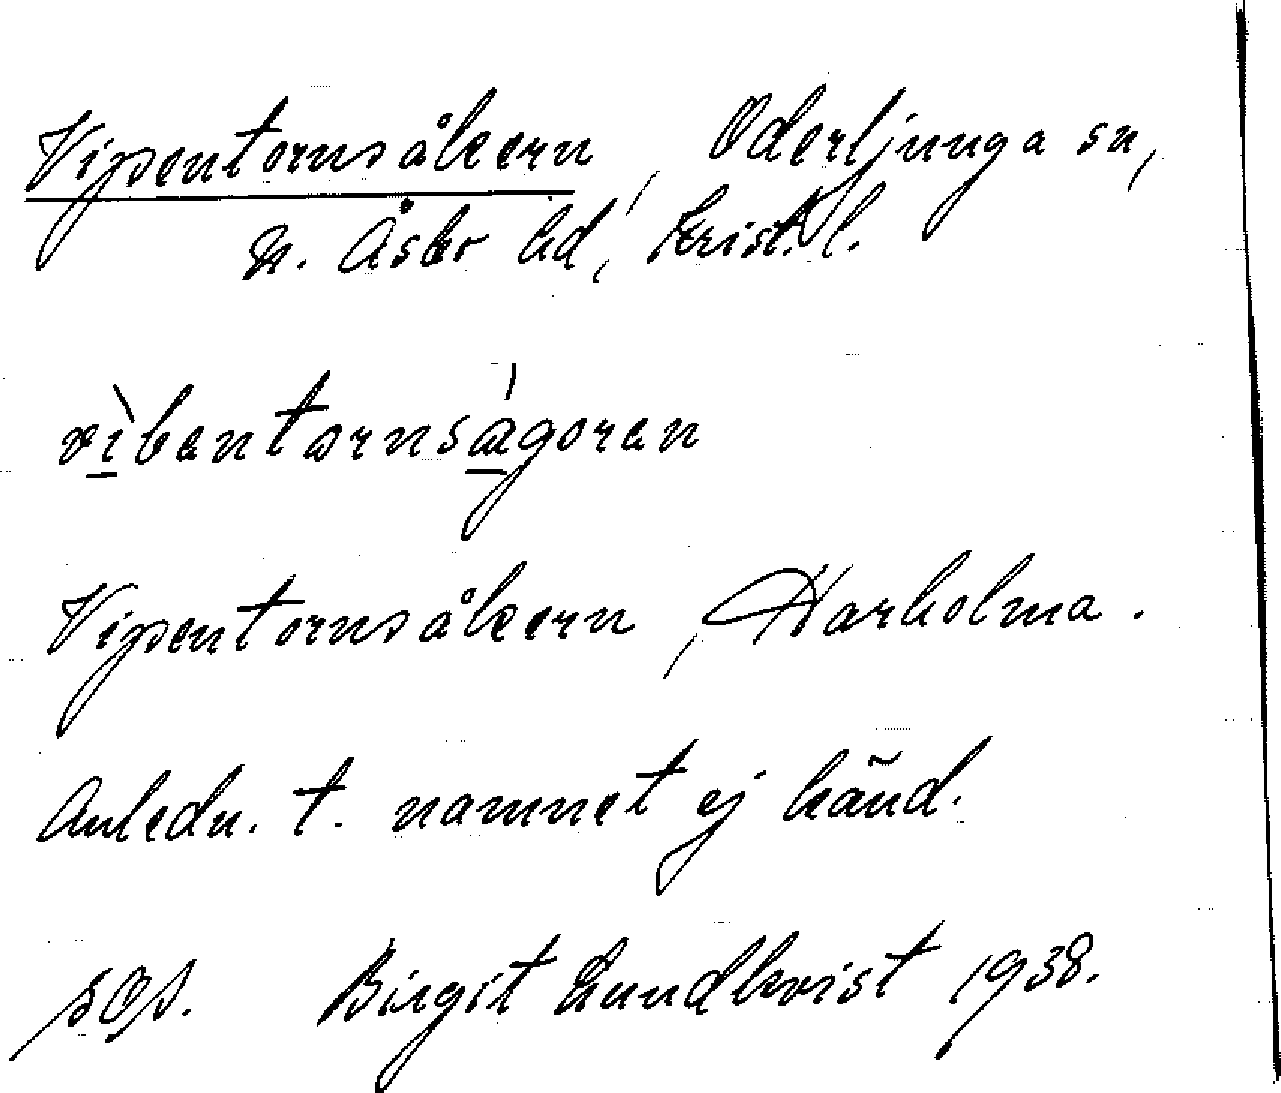 Vipentornsåkern, Oderljunga sn,
N. Åsbo hd, Krist. l.
vìbantornságoran
Vipentornsåkern, Harholma.
Anledn. t. namnet ej känd.
Birgit Lundkvist 1938.